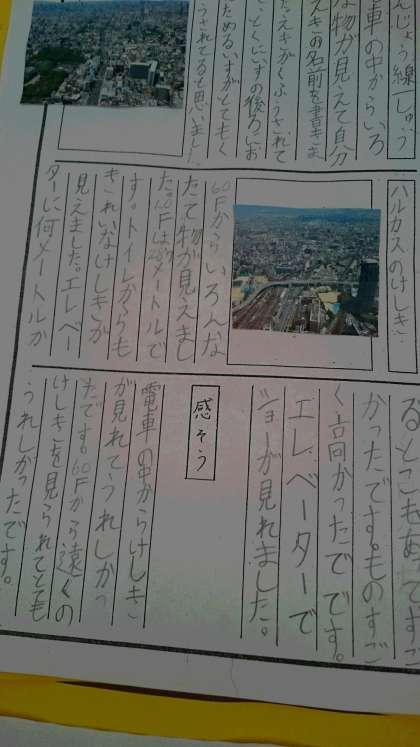 んじょう線しゅう
電車の中からいろ
な物が見えて自分
えきの名前を書きま
たえきがくふうされて
とくにいすの後ろにお
ためるいすがとてもく
うされてると思いました
ハルカスのけしき
60Fからいろんな
たて物が見えまし
た。60Fは288メートルで
す。トイレからも
きれいなけしきが
見えました。エレベー
ターに何メートルか
るとこもあってすご
かったです。ものすご
く高かったでです。
エレベーターで
ショーが見れました。
感そう
電車の中からけしき
が見れてうれしかっ
たです。60Fから遠くの
けしきを見られてとても
うれしかったです。